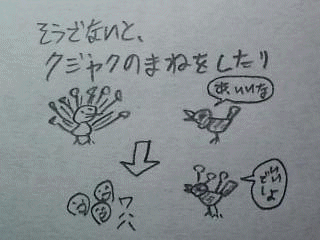 そうでないと、
クジャクのまねをしたり
あ、いいな
ワハハ
いいでしょ